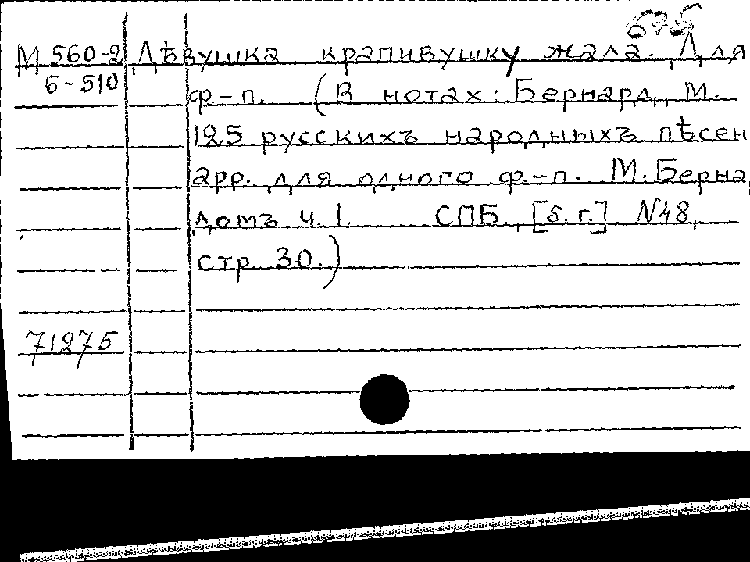 675
М 560-2 Дѣвушка крапивушку жала. Для
Б-510 ф-п. (В нотах: Бернард, М.
125 русскихъ народныхъ пѣсен
арр. для одного ф.-п. М. Берна
домъ ч. 1. СПБ., [б. г.] №48,
стр. 30.)
71275